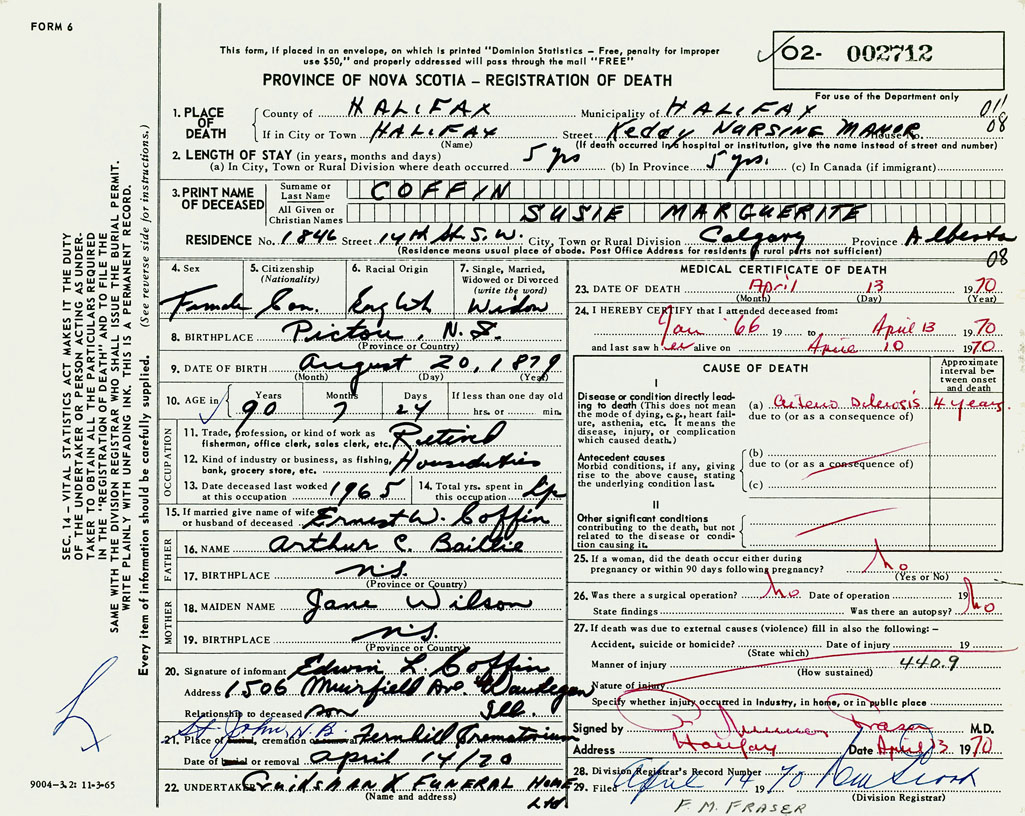 FORM 6
This form, if placed in an envelope, on which is printed "Dominion Statistics – Free, penalty for improper
use $50," and properly addressed will pass through the mail "FREE"
PROVINCE OF NOVA SCOTIA – REGISTRATION OF DEATH
O2- 002712
For use of the Department only
1. PLACE OF DEATH
County of HALIFAX Municipality of HALIFAX 011
If in City or Town HALIFAX Street Keddy NURSING MANOR House No. 08
(Name) (If death occurred in a hospital or institution, give the name instead of street and number)
2. LENGTH OF STAY (in years, months and days)
(a) In City, Town or Rural Division where death occurred 5 yrs (b) In Province 5 yrs. (c) In Canada (if immigrant)
3. PRINT NAME OF DECEASED
Surname or Last Name COFFIN
All Given or Christian Names SUSIE MARGUERITE
RESIDENCE No. 1846 Street 14th St. S.W. City, Town or Rural Division Calgary Province Alberta
(Residence means usual place of abode. Post Office Address for residents of rural parts not sufficient) 08
4. Sex 5. Citizenship (Nationality) 6. Racial Origin 7. Single, Married, Widowed or Divorced (write the word)
Female Can. English Widow
8. BIRTHPLACE Pictou, N.S.
(Province or Country)
9. DATE OF BIRTH August 20, 1879
(Month) (Day) (Year)
10. AGE in Years Months Days If less than one day old
90 7 24 hrs. or min.
OCCUPATION
11. Trade, profession, or kind of work as
fisherman, office clerk, sales clerk, etc. Retired
12. Kind of industry or business, as fishing,
bank, grocery store, etc. Houseduties
13. Date deceased last worked at this occupation 1965 14. Total yrs. spent in this occupation
15. If married give name of wife
or husband of deceased Ernest W. Coffin
FATHER
16. NAME Arthur C. Baillie
17. BIRTHPLACE N.S.
(Province or Country)
MOTHER
18. MAIDEN NAME Jane Wilson
19. BIRTHPLACE N.S.
(Province or Country)
20. Signature of informant Edwin L. Coffin
Address 1506 Muirfield Ave. Waukegan
Relationship to deceased son Ill.
St. John, N.B.
21. Place of burial, cremation or removal Fernhill Crematorium
Date of burial or removal April 14/70
22. UNDERTAKER Cruikshank Funeral Home
(Name and address) Ltd
MEDICAL CERTIFICATE OF DEATH
23. DATE OF DEATH April 13 1970
(Month) (Day) (Year)
24. I HEREBY CERTIFY that I attended deceased from:
Jan '66 19 to April 13 1970
and last saw her alive on April 10 1970
CAUSE OF DEATH
Approximate interval between onset and death
I
Disease or condition directly lead-
ing to death (This does not mean
the mode of dying, e.g., heart fail-
ure, asthenia, etc. It means the
disease, injury, or complication
which caused death.)
(a) Arterio Sclerosis 4 years.
due to (or as a consequence of)
Antecedent causes
Morbid conditions, if any, giving
rise to the above cause, stating
the underlying condition last.
(b)
due to (or as a consequence of)
(c)
II
Other significant conditions
contributing to the death, but not
related to the disease or condi-
tion causing it.
25. If a woman, did the death occur either during
pregnancy or within 90 days following pregnancy? No
(Yes or No)
26. Was there a surgical operation? No Date of operation 19
State findings Was there an autopsy? No
27. If death was due to external causes (violence) fill in also the following: –
Accident, suicide or homicide? Date of injury 19
(State which)
Manner of injury 440.9
(How sustained)
Nature of injury
Specify whether injury occurred in Industry, in home, or in public place
Signed by Fraser M.D.
Address Halifax Date April 13 1970
28. Division Registrar's Record Number
29. Filed April 14 1970
(Division Registrar)
F. M. FRASER
SEC. 14 – VITAL STATISTICS ACT MAKES IT THE DUTY
OF THE UNDERTAKER OR PERSON ACTING AS UNDER-
TAKER TO OBTAIN ALL THE PARTICULARS REQUIRED
IN THE "REGISTRATION OF DEATH" AND TO FILE THE
SAME WITH THE DIVISION REGISTRAR WHO SHALL ISSUE THE BURIAL PERMIT.
WRITE PLAINLY WITH UNFADING INK. THIS IS A PERMANENT RECORD.
Every item of information should be carefully supplied. (See reverse side for instructions.)
9004-3.2: 11-3-65